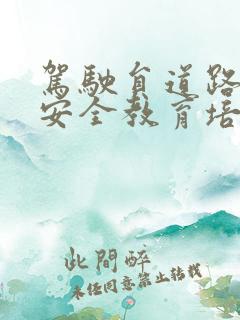 駕駛員道路
安全教育培
此間醉
未經同意禁止轉載